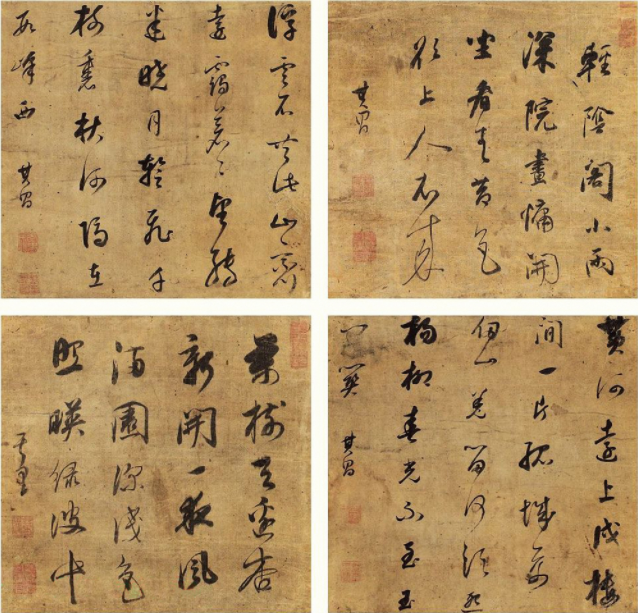 輕陰閣小雨
深院晝慵開
坐看青苔色
欲上人衣來
其昌
浮雲不共此山齊
遠靄蒼々望轉
迷曉月暫飛千
樹裏秋河隔在
數峰西
其昌
黃河遠上戍樓
間一片孤城萬
仞山羌笛何須怨
楊柳春光不至玉
門關
其昌
萬樹江邊杏
新開一夜風
滿園深淺色
照暎綠波中
其昌